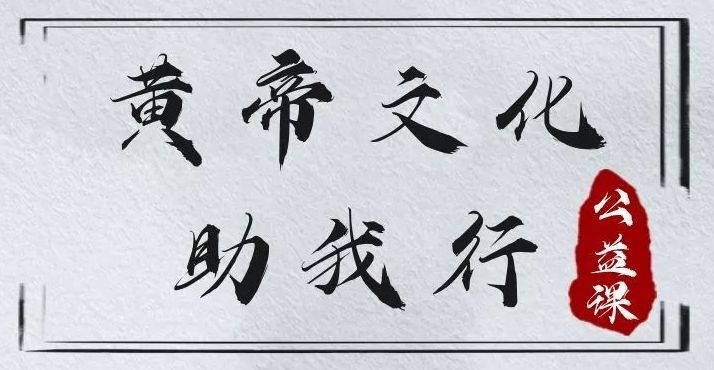 黄帝文化
助我行
公益课